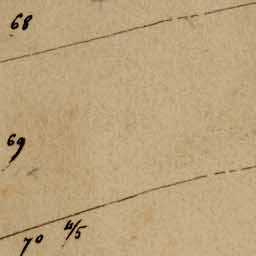 68
69
70 4/5